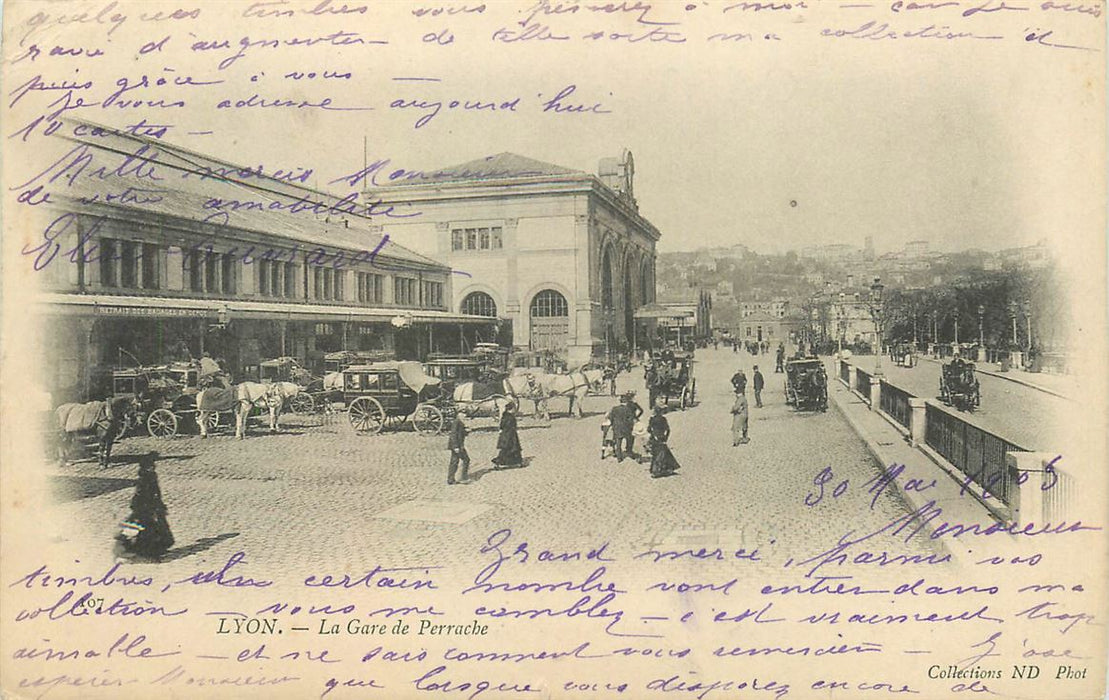 30 Mai 1903
Monsieur
Grand merci, parmi vos
timbres, un certain nombre vont entrer dans ma
collection – vous me comblez – c'est vraiment trop
aimable – et ne sais comment vous remercier – J'ose
espérer Monsieur que lorsque vous disposerez encore de
quelques timbres vous penserez à moi – car Je suis
ravie d'augmenter – de telle sorte ma collection et
puis grâce à vous –
Je vous adresse aujourd'hui
10 cartes –
Mille mercis Monsieur
de votre amabilité
RETRAIT DES BAGAGES EN DÉPÔT
107
LYON. — La Gare de Perrache
Collections ND Phot